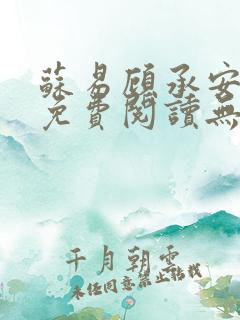 蘇易顧承安
免費閱讀無
千月朝雲
未經同意禁止轉載